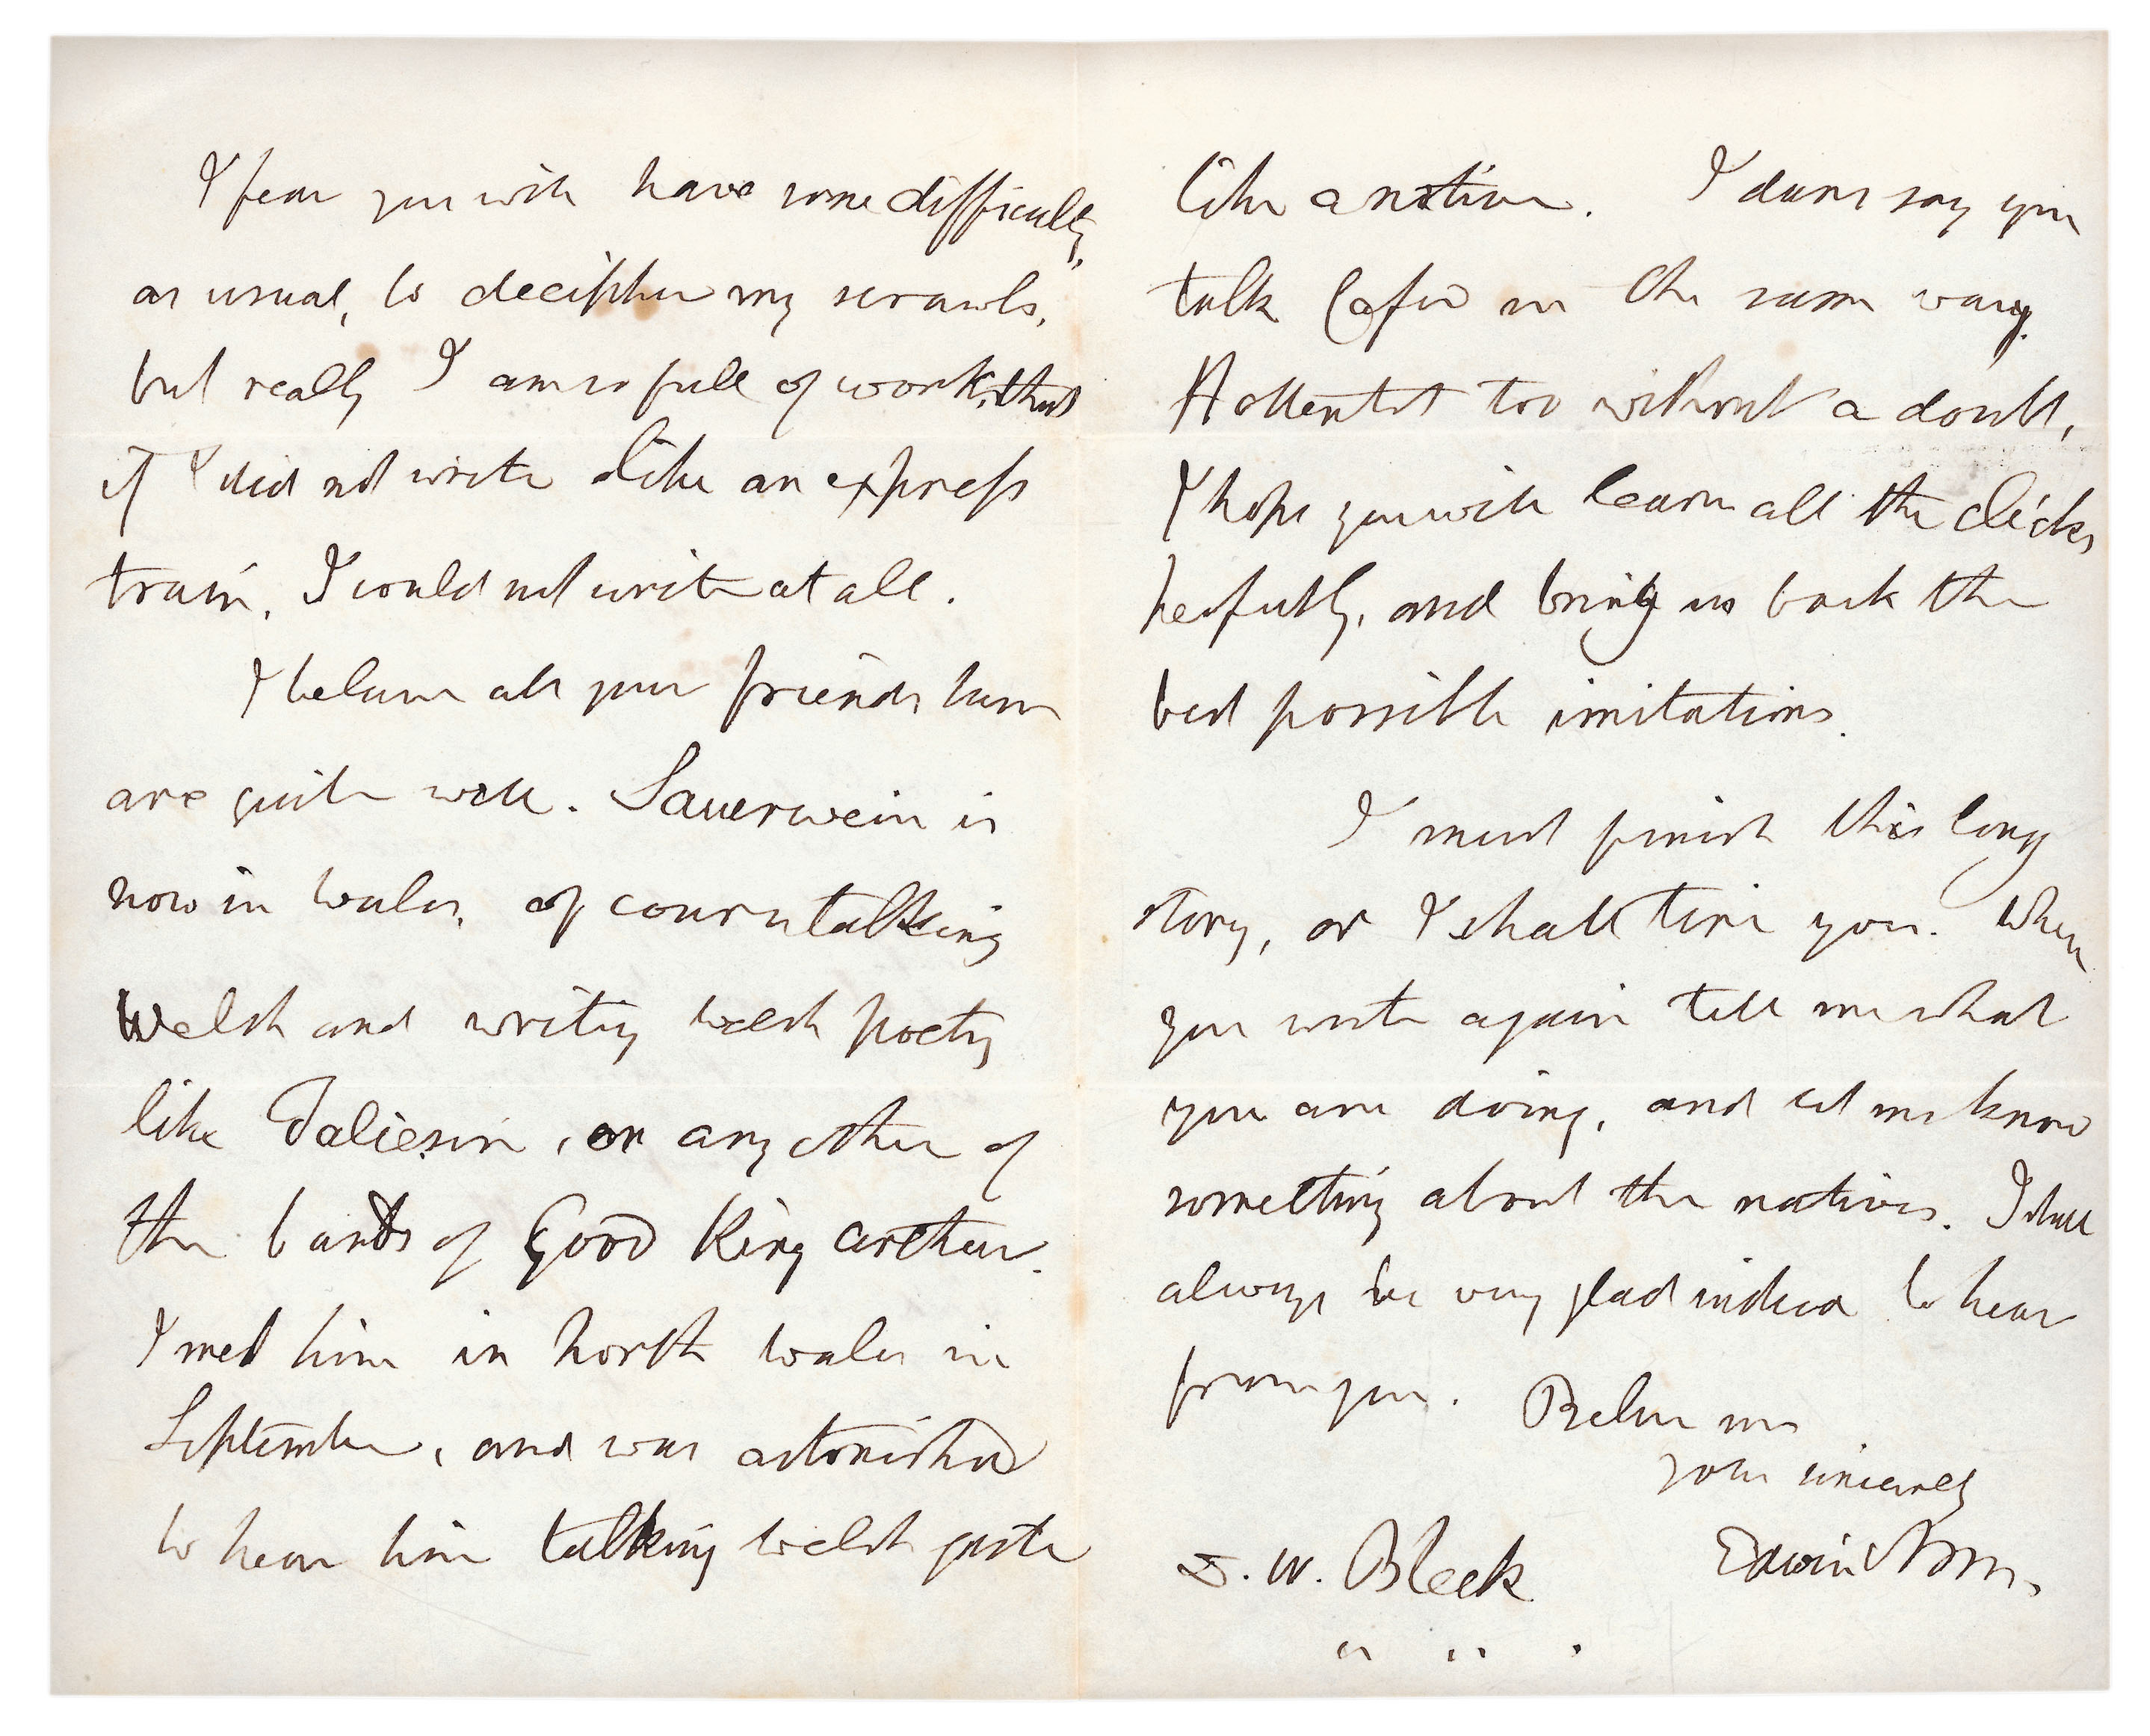 I fear you will have some difficulty,
as usual, to decipher my scrawls,
but really I am so full of work, that
if I did not write like an express
train, I could not write at all.
I believe all your friends here
are quite well. Sauerwein is
now in Wales, of course talking
Welsh and writing Welsh poetry
like Taliesin, or any other of
the bards of Good King Arthur.
I met him in North Wales in
September, and was astonished
to hear him talking Welsh quite
like a native. I dare say you
talk Cafir in the same way.
Hottentot too without a doubt,
I hope you will learn all the clicks
perfectly, and bring us back the
best possible imitations.
I must finish this long
story, or I shall tire you. When
you write again tell me what
you are doing, and let me know
something about the natives. I shall
always be very glad indeed to hear
from you. Believe me
yours sincerely
Edwin Norris
W. Bleek